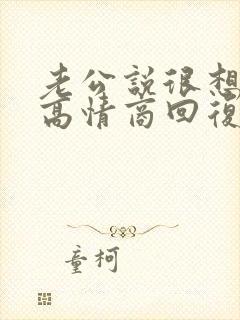 老公説很想
高情商回復
童柯